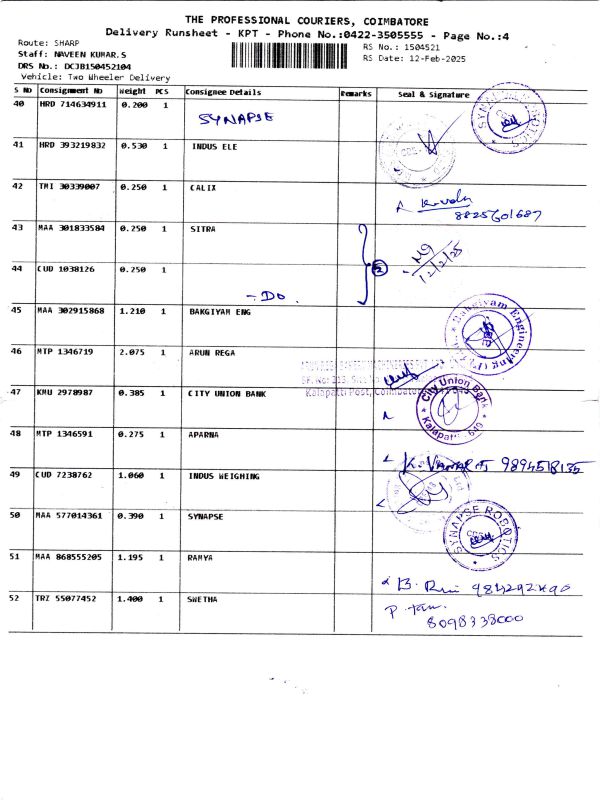 THE PROFESSIONAL COURIERS, COIMBATORE
Delivery Runsheet - KPT - Phone No.:0422-3505555 - Page No.:4
Route: SHARP
Staff: NAVEEN KUMAR.S
DRS No.: DCJB150452104
Vehicle: Two Wheeler Delivery
RS No.: 1504521
RS Date: 12-Feb-2025
S No Consignment No Weight PCS Consignee Details Remarks Seal & Signature
40 HRD 714634911 0.200 1
SYNAPSE
41 HRD 393219832 0.530 1 INDUS ELE
42 TMI 30339007 0.250 1 CALIX
8825601687
43 MAA 301833584 0.250 1 SITRA
12/2/25
44 CUD 1038126 0.250 1
- DO.
45 MAA 302915868 1.210 1 BAKGIYAM ENG
Bakgiyam Engineering (P) Ltd
46 MTP 1346719 2.075 1 ARUN REGA
Kalapatti Post, Coimbatore
47 KMU 2978987 0.385 1 CITY UNION BANK
City Union Bank
Kalapatti
48 MTP 1346591 0.275 1 APARNA
9894518135
49 CUD 7238762 1.060 1 INDUS WEIGHING
50 MAA 577014361 0.390 1 SYNAPSE
SYNAPSE ROBOTICS
51 MAA 868555205 1.195 1 RAMYA
52 TRZ 55077452 1.400 1 SWETHA
8098338000